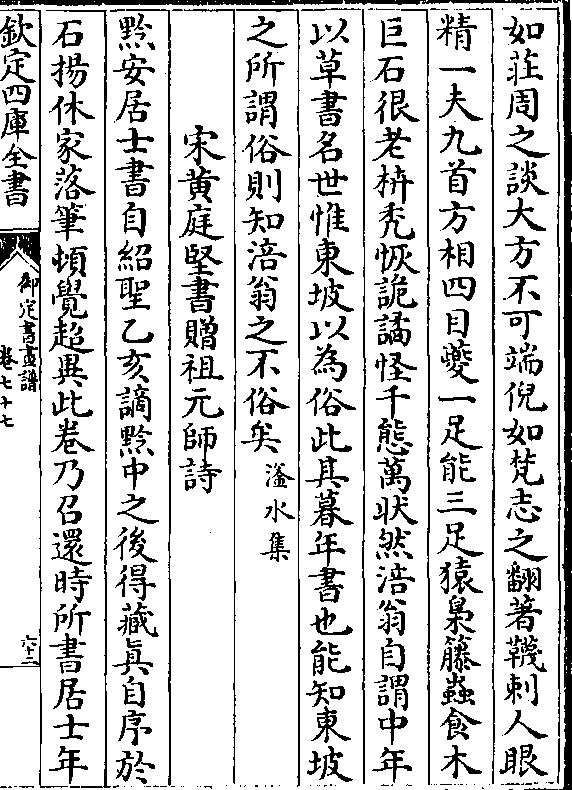 如莊周之談大方不可端倪如梵志之翻著韈刺人眼
精一夫九首方相四目夔一足能三足猿梟籐蟲食木
巨石很老枿秃恢詭譎怪千態萬狀然涪翁自謂中年
以草書名世惟東坡以為俗此其暮年書也能知東坡
之所謂俗則知涪翁之不俗矣滏水集
宋黄庭堅書贈祖元師詩
黔安居士書自紹聖乙亥謫黔中之後得藏真自序於
石揚休家落筆頓覺超異此卷乃召還時所書居士年
欽定四庫全書
御定書畫譜
卷七十七
六十二